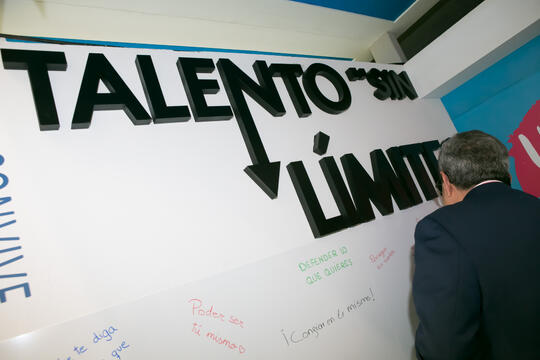 TALENTO SIN
LÍMITE
CONVIVE
DEFENDER LO
QUE QUIERES
Poder ser
tú mismo
¡Confiar en lo mismo!
te diga
que